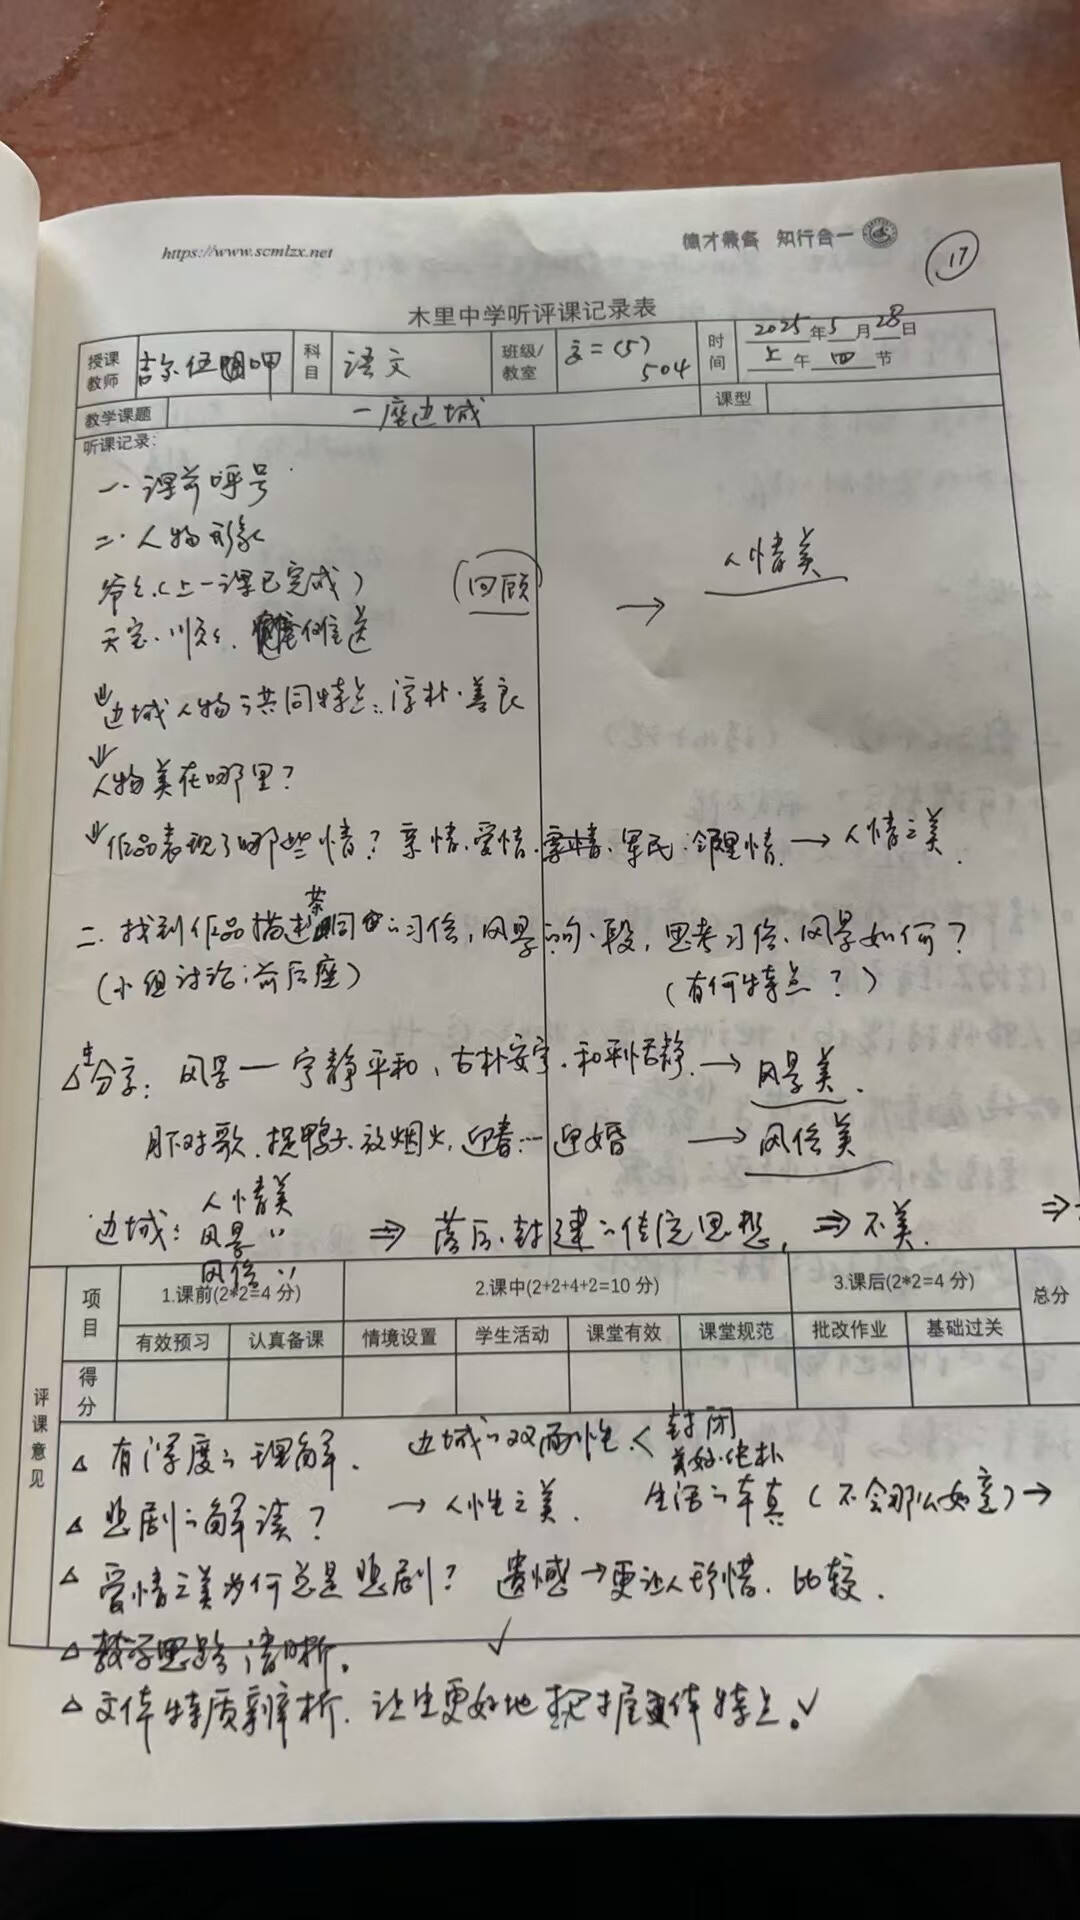 https://www.scmlzx.net
德才兼备 知行合一
17
木里中学听评课记录表
授课教师 吉尔伍呷 科目 语文 班级/教室 高二(5) 504 时间 2025年5月28日 上午四节
教学课题 一座边城 课型
听课记录:
一. 课前呼号
二. 人物形象
爷爷(上一课已完成) (回顾) → 人情美
天宝、顺顺、傩送
⇓ 边城人物的共同特点: 淳朴·善良
⇓ 人物美在哪里?
⇓ 作品表现了哪些情? 亲情、爱情、军民、邻里情 → 人情之美
二. 找到作品描述茶峒的习俗,风景的句、段,思考习俗、风景如何?
(小组讨论:前后座) (有何特点?)
△生分享: 风景一宁静平和、古朴安宁、和平恬静 → 风景美.
月下对歌、捉鸭子、放烟火、迎春… 迎婚 → 风俗美
边城: 人情美
风景〃 ⇒ 落后、封建的传统思想, ⇒ 不美. ⇒
风俗〃
评课意见
项目 1.课前(2*2=4 分) 2.课中(2+2+4+2=10 分) 3.课后(2*2=4 分) 总分
有效预习 认真备课 情境设置 学生活动 课堂有效 课堂规范 批改作业 基础过关
得分
△ 有深度的理解. 边城的双面性 < 封闭
美好·纯朴
△ 悲剧的解读? → 人性之美. 生活的本真(不会那么如意) →
△ 爱情之美为何总是悲剧? 遗憾 → 更让人珍惜. 比较.
△ 教学思路清晰. ✓
△ 文体特质辨析. 让生更好地把握文体特点。✓